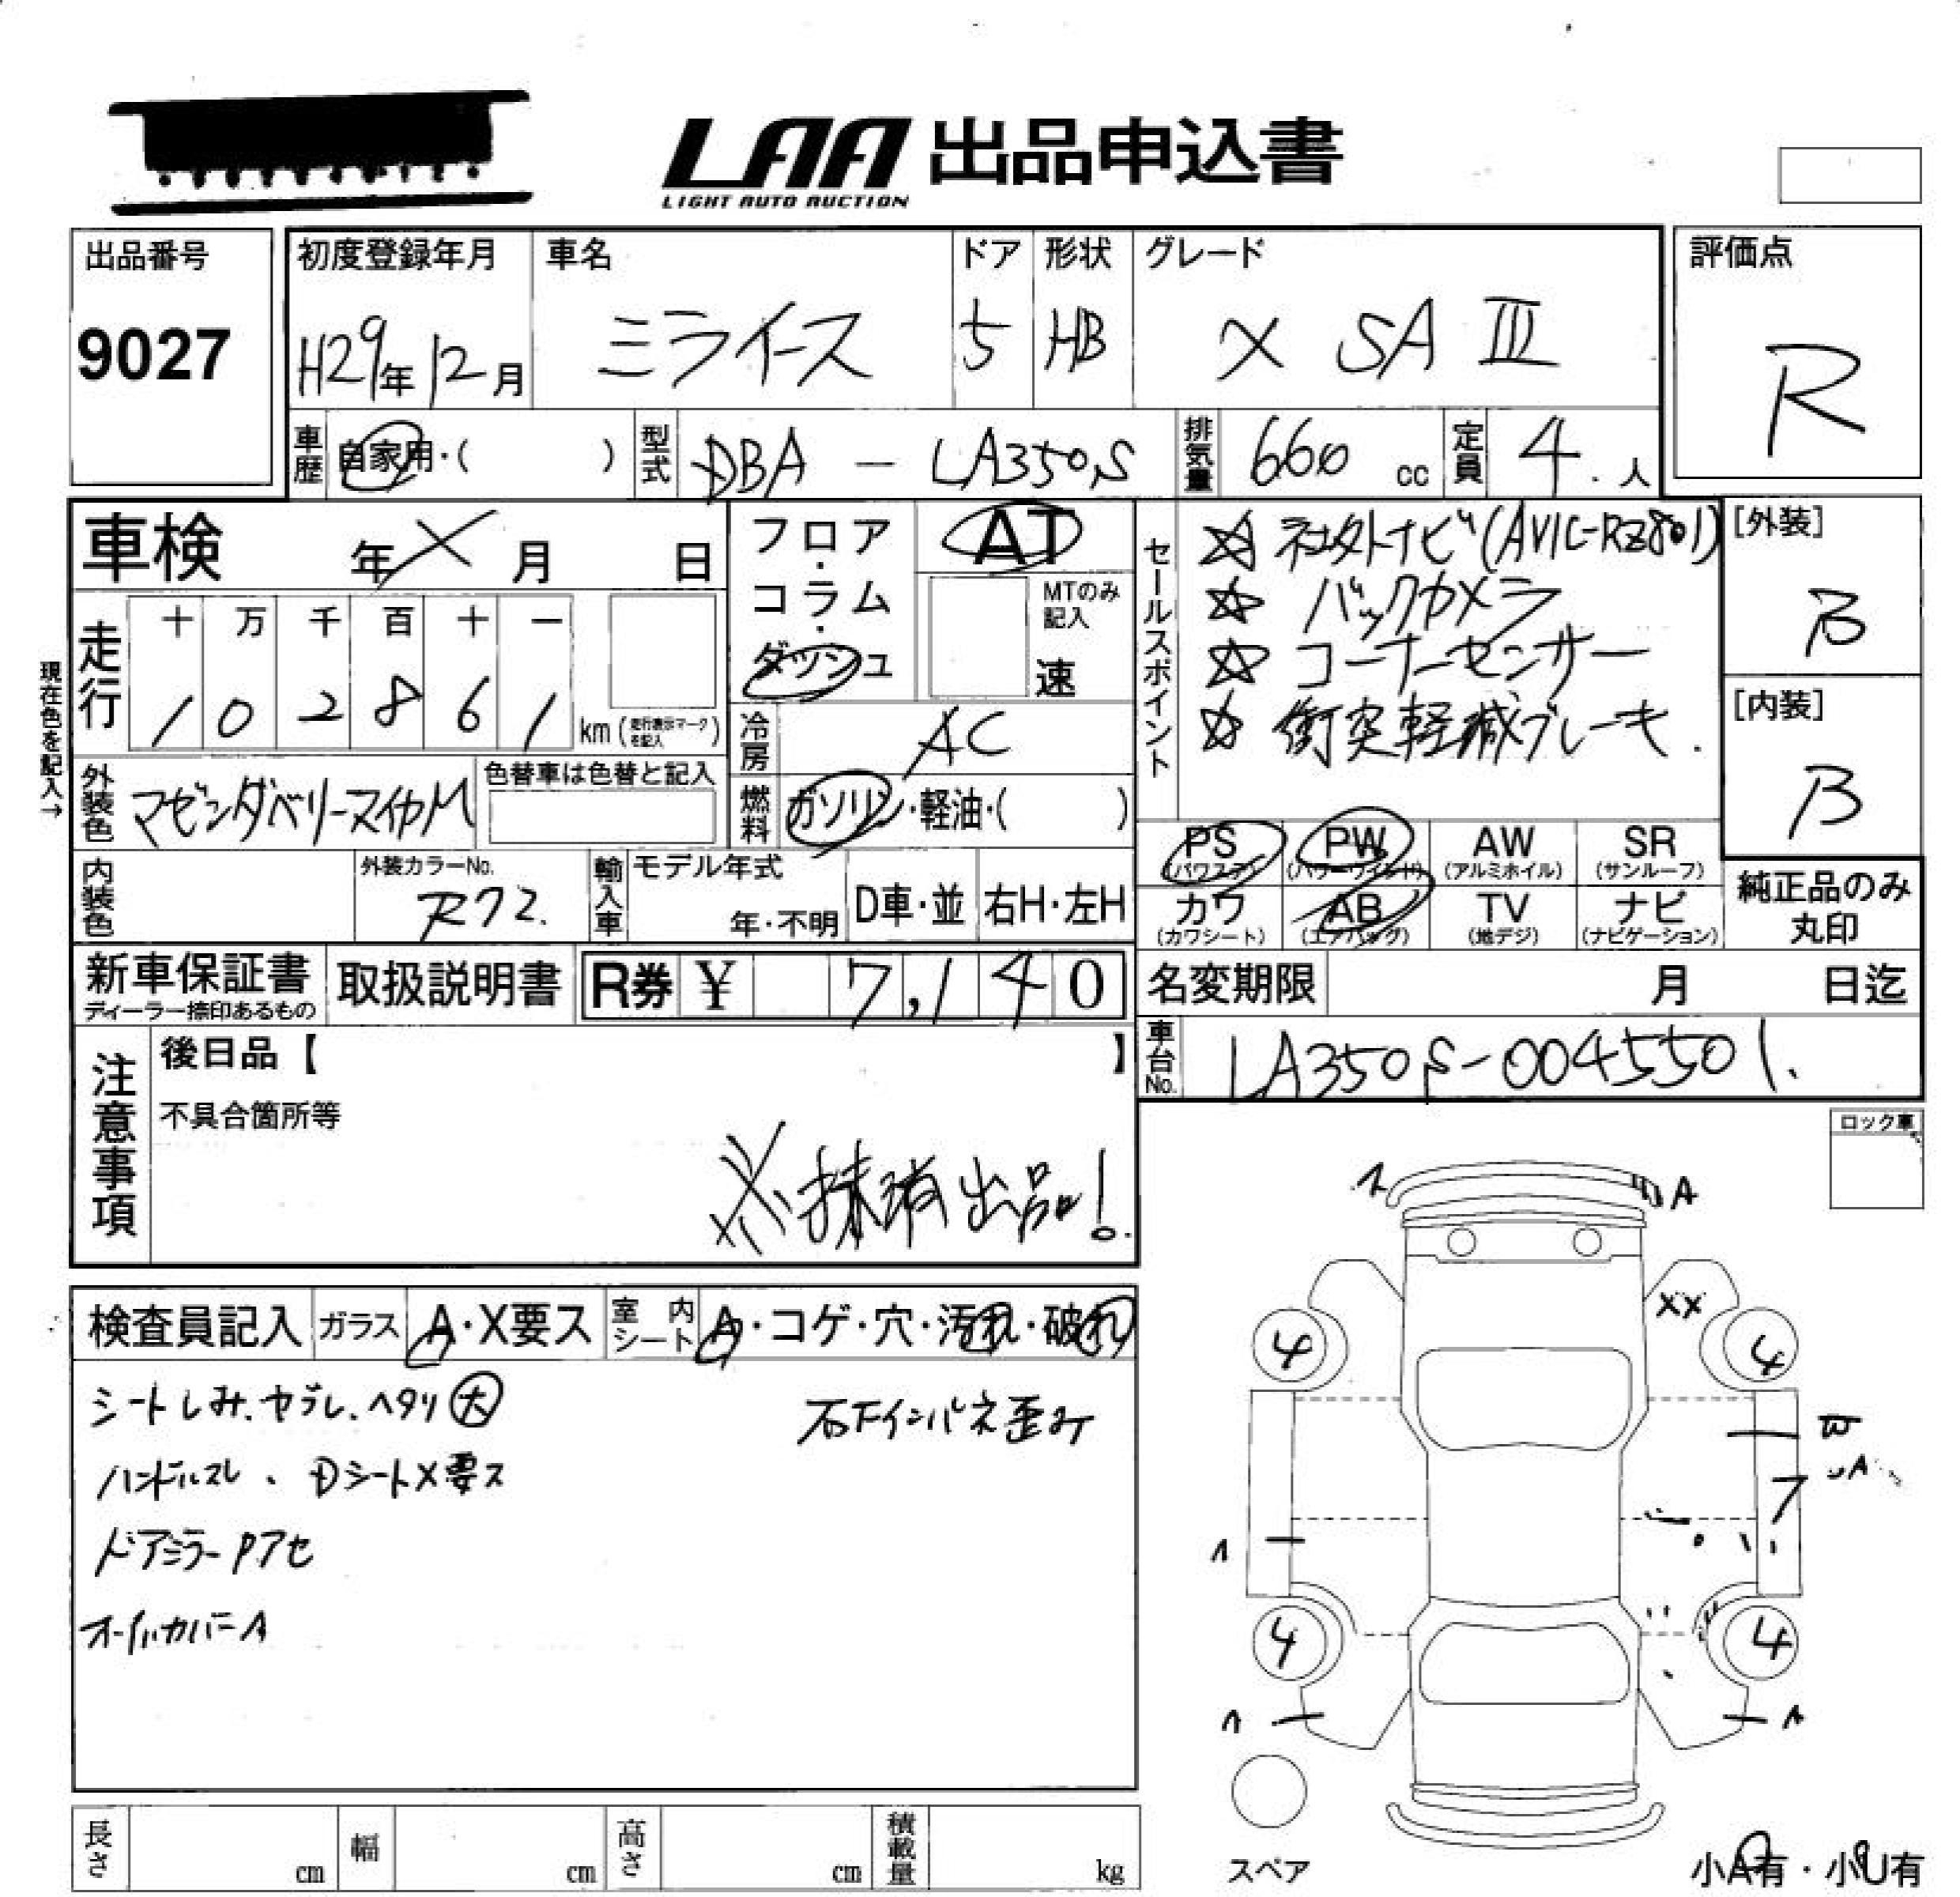 LAA 出品申込書
LIGHT AUTO AUCTION
出品番号
9027
初度登録年月
H29年 12月
車名
ミライース
ドア
5
形状
HB
グレード
X SA III
評価点
R
車歴 自家用・( )
型式 DBA - LA350S
排気量 660 cc
定員 4 人
車検 年 X 月 日
フロア・コラム・ダッシュ
AT
MTのみ記入
速
セールスポイント
☆ 社外ナビ(AVIC-RZ801)
☆ バックカメラ
☆ コーナーセンサー
☆ 衝突軽減ブレーキ.
[外装]
B
[内装]
B
現在色を記入→
走行
十 万 千 百 十 一
1 0 2 8 6 1 km (走行表示マークを記入)
冷房 AC
外装色 マゼンダベリーマイカM
色替車は色替と記入
燃料 ガソリン・軽油・( )
PS (パワステ)
PW (パワーウインド)
AW (アルミホイル)
SR (サンルーフ)
カワ (カワシート)
AB (エアバッグ)
TV (地デジ)
ナビ (ナビゲーション)
純正品のみ丸印
内装色
外装カラーNo.
R72.
輸入車
モデル年式
年・不明
D車・並
右H・左H
新車保証書
ディーラー捺印あるもの
取扱説明書
R券 ¥ 7,140
名変期限 月 日迄
車台No. LA350S-0045501.
注意事項
後日品【 】
不具合箇所等
※抹消出品!
ロック車
検査員記入
ガラス A・X要ス
室内シート A・コゲ・穴・汚れ・破れ
シートしみ.ヤブレ.ヘタリ大
右Fインパネ歪み
ハンドルスレ、DシートX要ス
ドアミラーPアセ
A
XX
4 4
W
A
7
4 4
長さ cm
幅 cm
高さ cm
積載量 kg
スペア
小A有・小U有